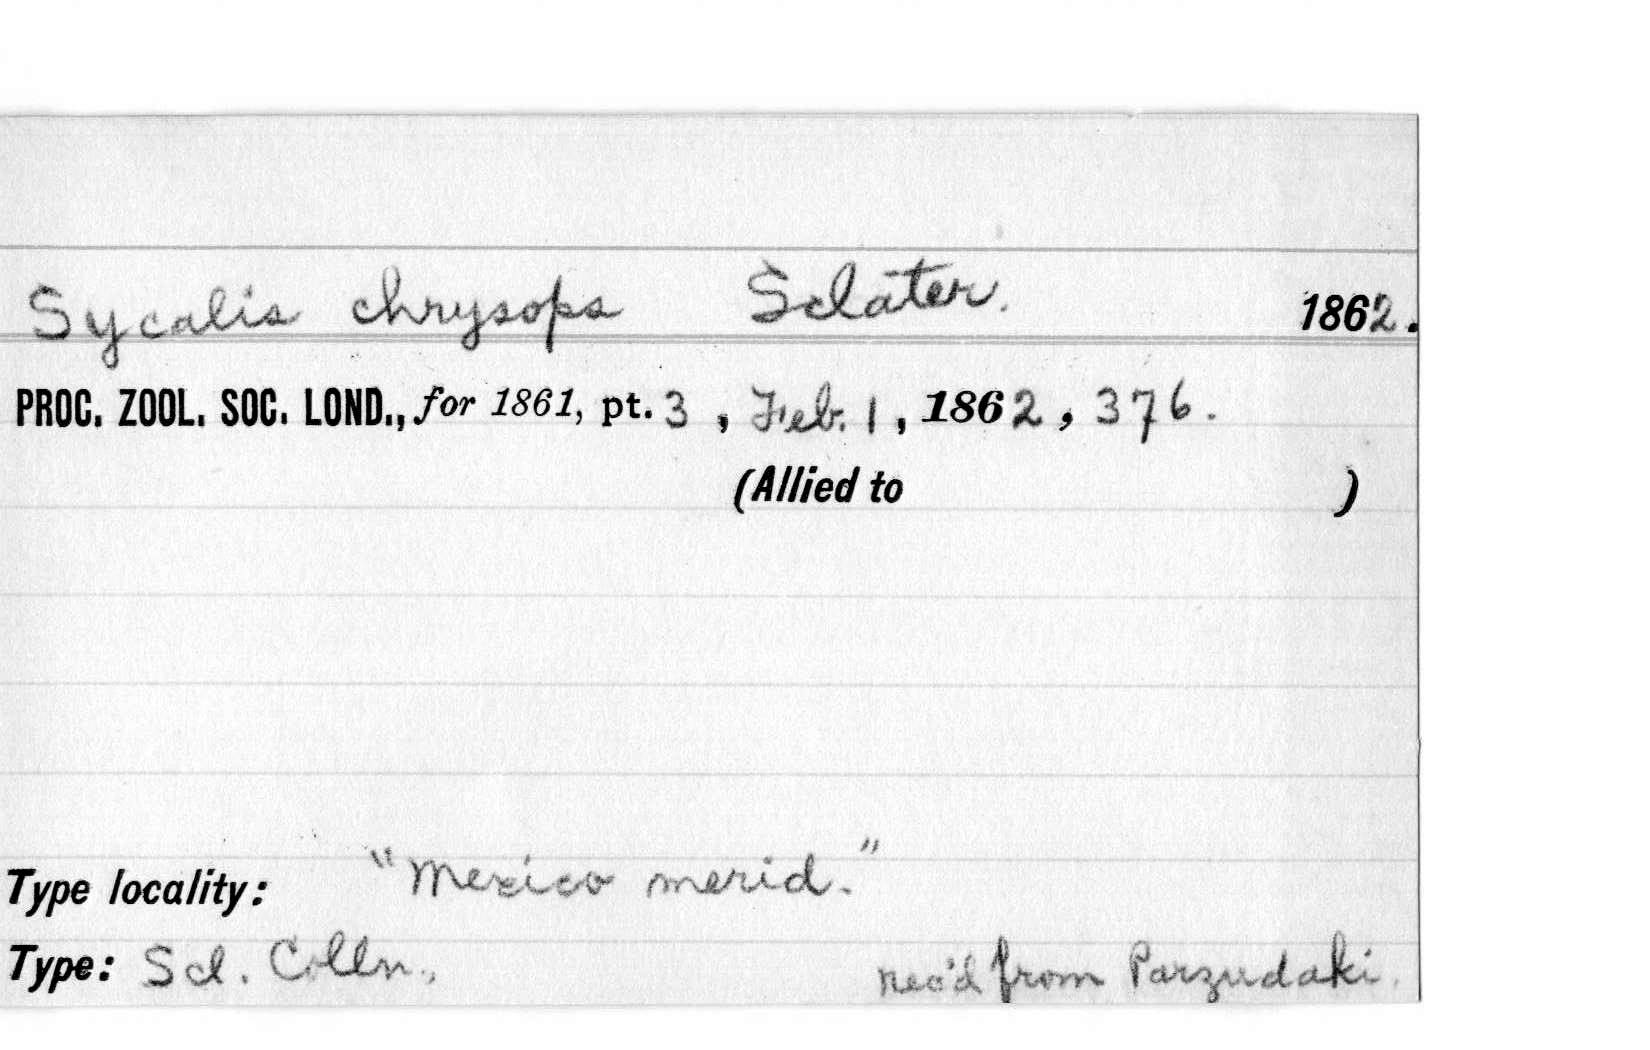 Sycalis chrysops Sclater. 1862.
PROC. ZOOL. SOC. LOND., for 1861, pt. 3, Feb. 1, 1862, 376.
(Allied to )
Type locality: "Mexico merid."
Type: Scl. Colln., rec'd from Parzudaki.